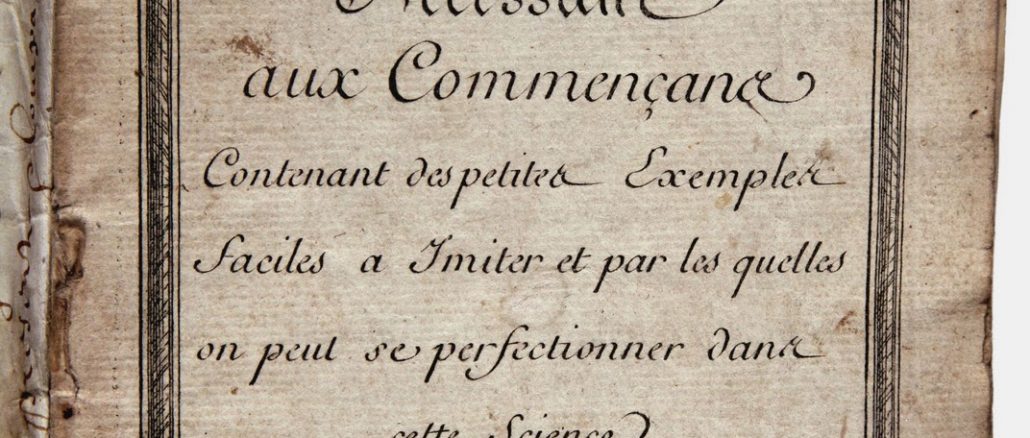 Necessaire
aux Commençans
Contenant des petites Exemples
faciles a Imiter et par les quelles
on peut se perfectionner dans
cette Science